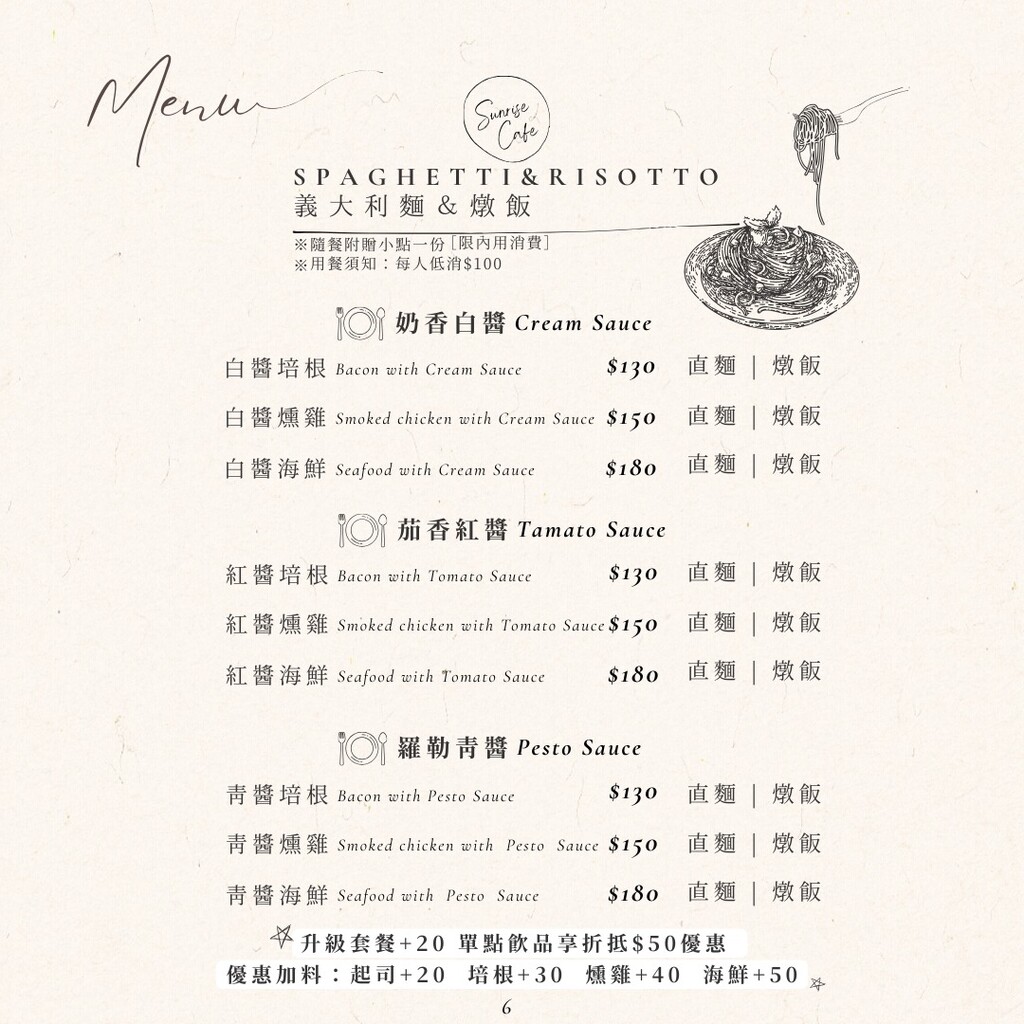 Menu
Sunrise
Cafe
SPAGHETTI&RISOTTO
義大利麵&燉飯
※隨餐附贈小點一份[限內用消費]
※用餐須知：每人低消$100
奶香白醬 Cream Sauce
白醬培根 Bacon with Cream Sauce $130 直麵 | 燉飯
白醬燻雞 Smoked chicken with Cream Sauce $150 直麵 | 燉飯
白醬海鮮 Seafood with Cream Sauce $180 直麵 | 燉飯
茄香紅醬 Tamato Sauce
紅醬培根 Bacon with Tomato Sauce $130 直麵 | 燉飯
紅醬燻雞 Smoked chicken with Tomato Sauce $150 直麵 | 燉飯
紅醬海鮮 Seafood with Tomato Sauce $180 直麵 | 燉飯
羅勒青醬 Pesto Sauce
青醬培根 Bacon with Pesto Sauce $130 直麵 | 燉飯
青醬燻雞 Smoked chicken with Pesto Sauce $150 直麵 | 燉飯
青醬海鮮 Seafood with Pesto Sauce $180 直麵 | 燉飯
升級套餐+20 單點飲品享折抵$50優惠
優惠加料：起司+20 培根+30 燻雞+40 海鮮+50
6